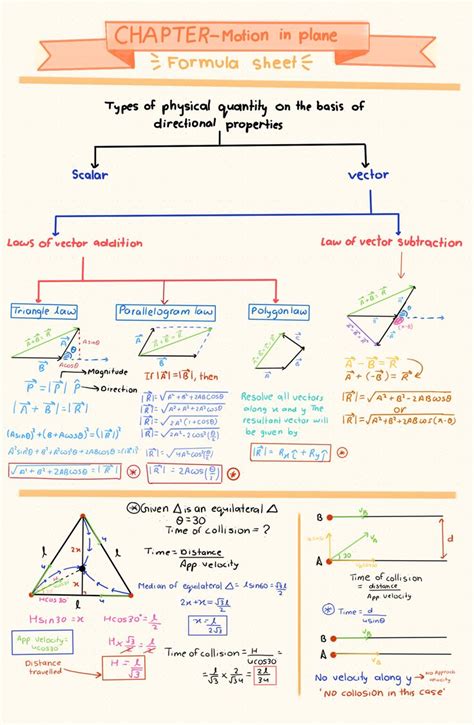 CHAPTER-Motion in plane
Formula sheet
Types of physical quantity on the basis of
directional properties
Scalar
vector
Laws of vector addition
Law of vector subtraction
Triangle law
Parallelogram law
Polygon law
Asinθ
Acosθ
Magnitude
P⃗ = |P⃗| P̂ → Direction
|A⃗ + B⃗| = |R⃗|
(Asinθ)² + (B + Acosθ)² = (|R⃗|)²
A²sin²θ + B² + A²cos²θ + 2ABcosθ = (|R⃗|)²
√A² + B² + 2ABcosθ = |R⃗|
If |A⃗| = |B⃗|, then
|R⃗| = √A² + A² + 2A²cosθ
|R⃗| = √2A² + 2A²cosθ
|R⃗| = √2A²(1 + cosθ)
|R⃗| = 2Acos(θ/2)
Resolve all vectors
along x and y The
resultant vector will
be given by
|R⃗| = Rxî + Ryĵ
A⃗ - B⃗ = R⃗
A⃗ + (-B⃗) = R⃗
|R⃗| = √A² + B² - 2ABcosθ
or
|R⃗| = √A² + B² + 2ABcos(π-θ)
Given △ is an equilateral △
θ = 30
Time of collision = ?
Time = Distance
App velocity
Median of equilateral △ = lsin60 = √3l/2
2x + x = √3l/2
x = l/2√3
Time of collision = H/ucos30
Hsin30 = x
Hcos30° = l/2
H x √3/2 = l/2
H = l/√3
App.velocity =
ucos30°
Distance
travelled
B
d
A
30
Time of collision
= distance
App velocity
Time = d/usinθ
B
A
No velocity along y → No Approach velocity
'NO collosion in this case'